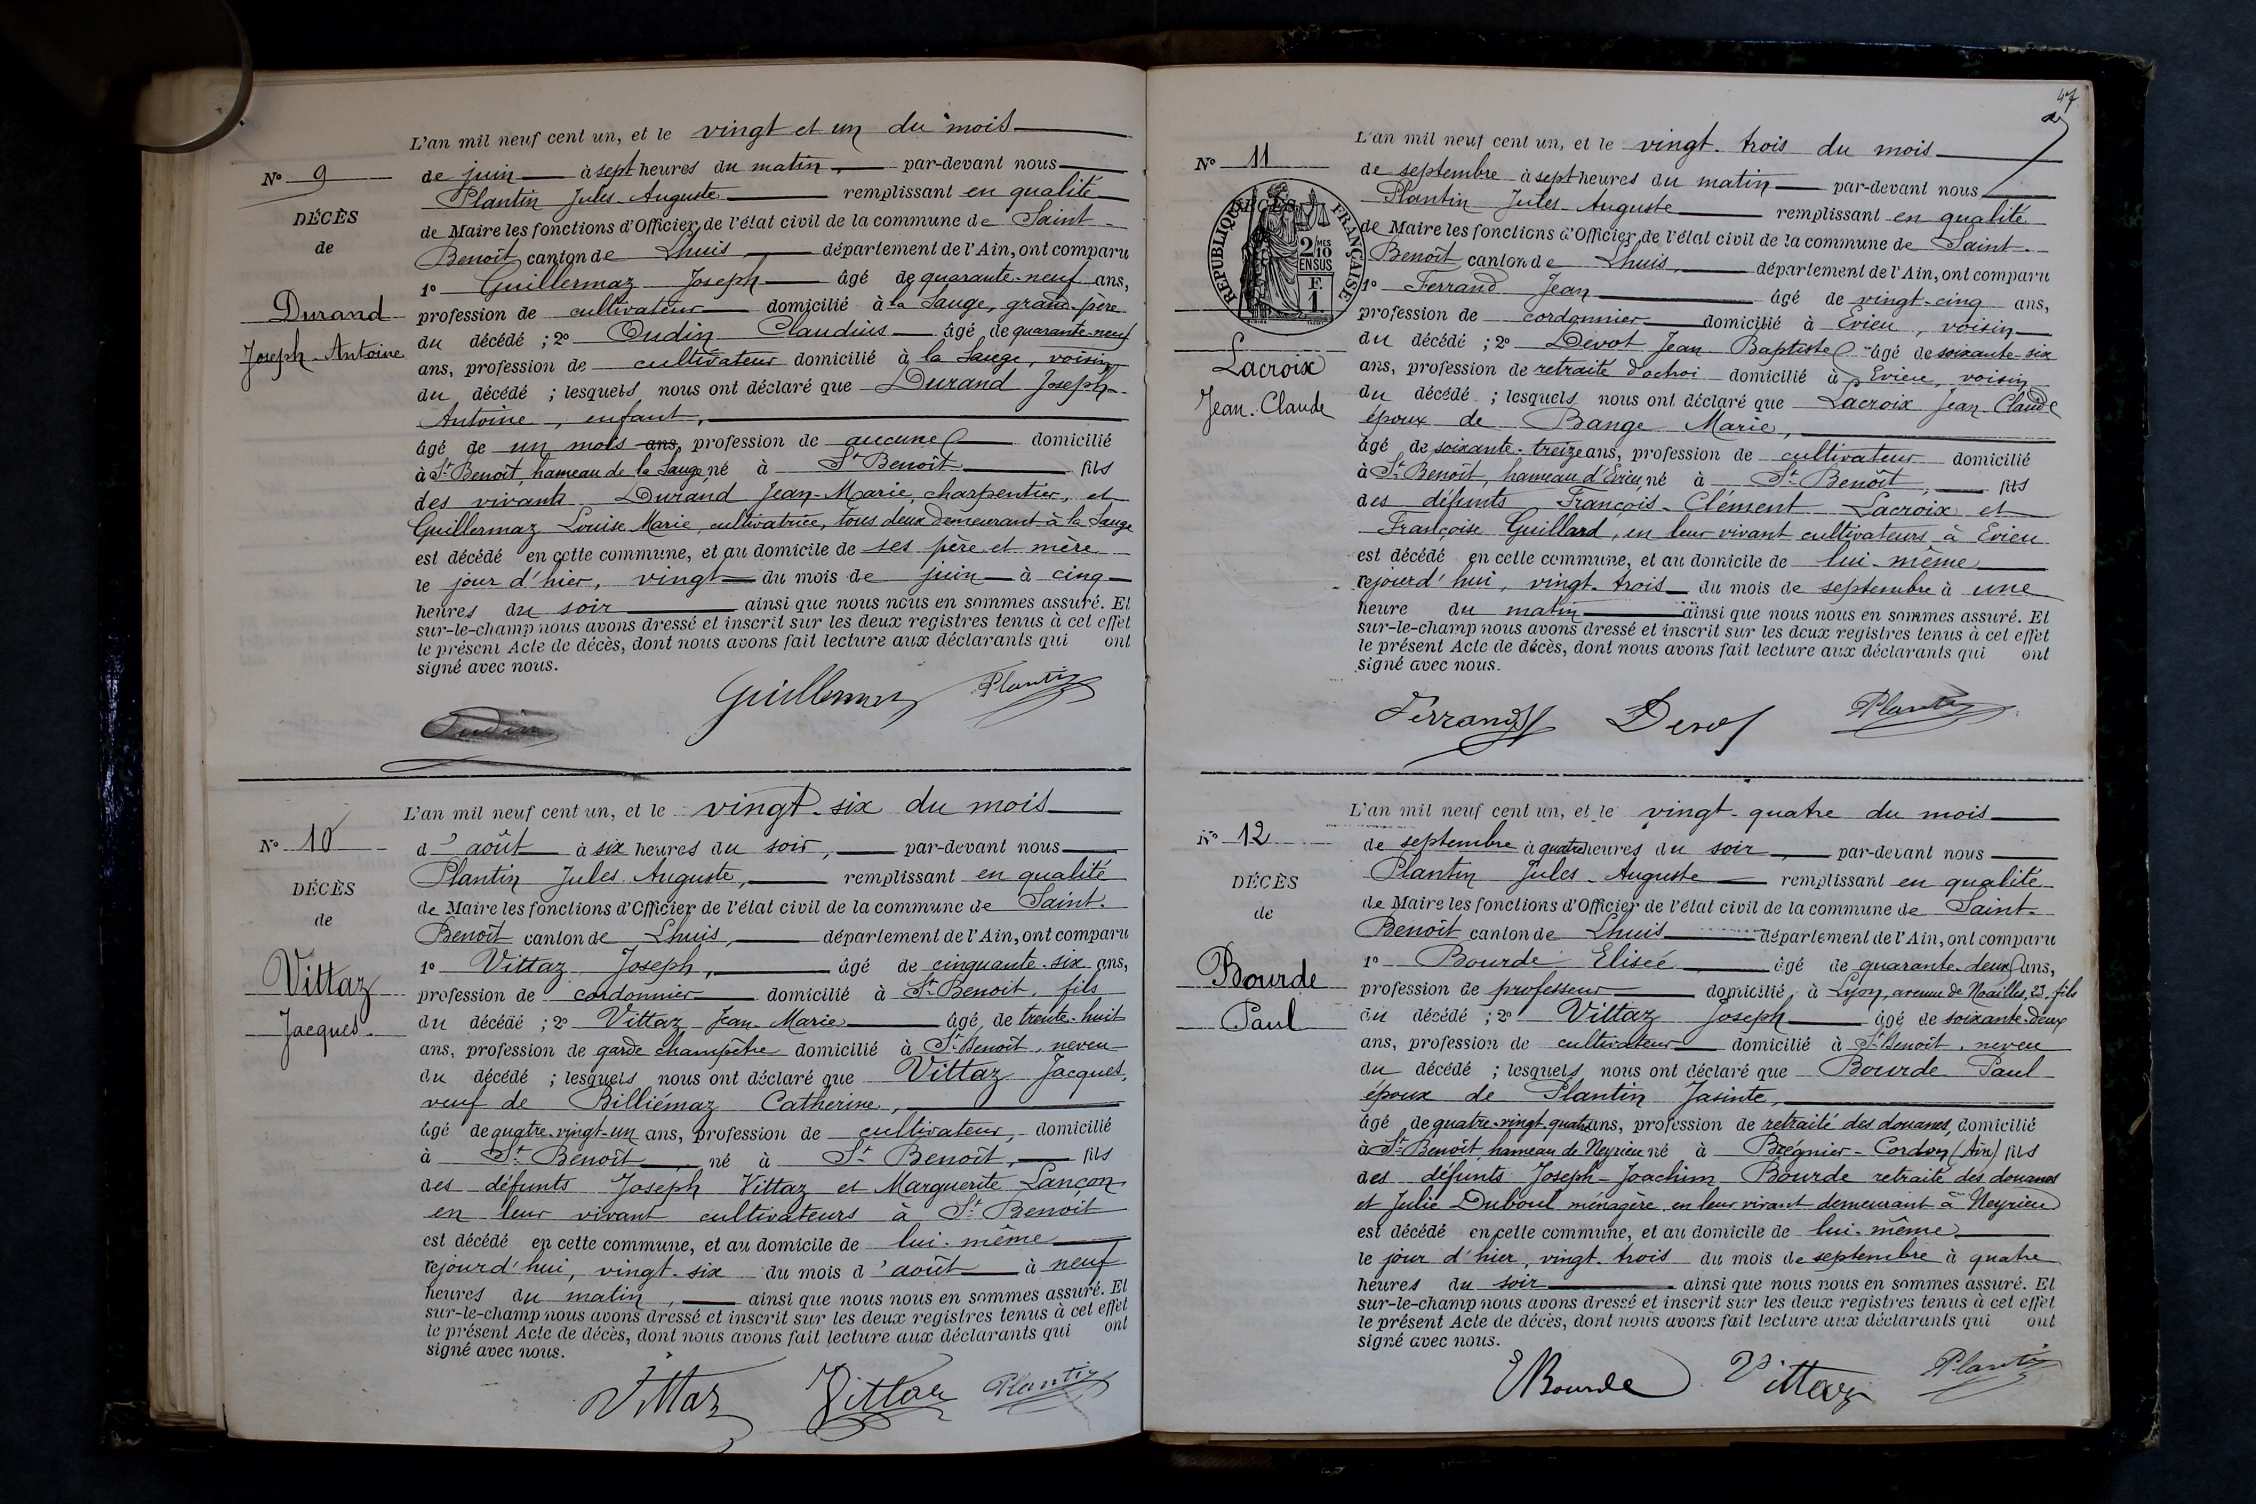 L'an mil neuf cent un, et le vingt et un du mois
N° 9
de juin à sept heures du matin, par-devant nous
Plantin Jules-Auguste remplissant en qualité
DÉCÈS
de Maire les fonctions d'Officier de l'état civil de la commune de Saint-
de
Benoît canton de Lhuis département de l'Ain, ont comparu
1° Guillermaz Joseph âgé de quarante-neuf ans,
Durand
profession de cultivateur domicilié à la Sauge, grand-père
du décédé ; 2° Oudin Claudius âgé de quarante-neuf
Joseph-Antoine
ans, profession de cultivateur domicilié à la Sauge, voisin
du décédé ; lesquels nous ont déclaré que Durand Joseph-
Antoine, enfant,
âgé de un mois ans, profession de aucune domicilié
à St Benoît, hameau de la Sauge, né à St Benoît fils
des vivants Durand Jean-Marie, charpentier, et
Guillermaz Louise Marie, cultivatrice, tous deux demeurant à la Sauge
est décédé en cette commune, et au domicile de ses père et mère
le jour d'hier, vingt du mois de juin à cinq
heures du soir ainsi que nous nous en sommes assuré. Et
sur-le-champ nous avons dressé et inscrit sur les deux registres tenus à cet effet
le présent Acte de décès, dont nous avons fait lecture aux déclarants qui ont
signé avec nous.
Guillermaz Plantin
Oudin
L'an mil neuf cent un, et le vingt-six du mois
N° 10
d'août à six heures du soir, par-devant nous
Plantin Jules-Auguste, remplissant en qualité
DÉCÈS
de Maire les fonctions d'Officier de l'état civil de la commune de Saint-
de
Benoît canton de Lhuis, département de l'Ain, ont comparu
1° Vittaz Joseph, âgé de cinquante-six ans,
Vittaz
profession de cordonnier domicilié à St Benoît, fils
du décédé ; 2° Vittaz Jean-Marie âgé de trente-huit
Jacques
ans, profession de garde champêtre domicilié à St Benoît, neveu
du décédé ; lesquels nous ont déclaré que Vittaz Jacques,
veuf de Billiémaz Catherine,
âgé de quatre-vingt-un ans, profession de cultivateur, domicilié
à St Benoît, né à St Benoît, fils
des défunts Joseph Vittaz et Marguerite Lançon
en leur vivant cultivateurs à St Benoît
est décédé en cette commune, et au domicile de lui-même
cejourd'hui, vingt-six du mois d'août à neuf
heures du matin, ainsi que nous nous en sommes assuré. Et
sur-le-champ nous avons dressé et inscrit sur les deux registres tenus à cet effet
le présent Acte de décès, dont nous avons fait lecture aux déclarants qui ont
signé avec nous.
Vittaz Vittaz Plantin
47
L'an mil neuf cent un, et le vingt-trois du mois
N° 11
de septembre à sept heures du matin par-devant nous
Plantin Jules-Auguste remplissant en qualité
DÉCÈS
RÉPUBLIQUE FRANÇAISE
2/10 MES EN SUS
F. 1
de Maire les fonctions d'Officier de l'état civil de la commune de Saint-
Benoît canton de Lhuis, département de l'Ain, ont comparu
1° Ferrand Jean âgé de vingt-cinq ans,
profession de cordonnier domicilié à Evieu, voisin
du décédé ; 2° Devot Jean Baptiste âgé de soixante-six
Lacroix
ans, profession de retraité d'octroi domicilié à Evieu, voisin
Jean-Claude
du décédé ; lesquels nous ont déclaré que Lacroix Jean-Claude
époux de Bange Marie,
âgé de soixante-treize ans, profession de cultivateur domicilié
à St Benoît, hameau d'Evieu, né à St Benoît, fils
des défunts François-Clément Lacroix et
Françoise Guillard, en leur vivant cultivateurs à Evieu
est décédé en cette commune, et au domicile de lui-même
cejourd'hui, vingt-trois du mois de septembre à une
heure du matin ainsi que nous nous en sommes assuré. Et
sur-le-champ nous avons dressé et inscrit sur les deux registres tenus à cet effet
le présent Acte de décès, dont nous avons fait lecture aux déclarants qui ont
signé avec nous.
Ferrand Devot Plantin
L'an mil neuf cent un, et le vingt-quatre du mois
N° 12
de septembre à quatre heures du soir, par-devant nous
Plantin Jules-Auguste remplissant en qualité
DÉCÈS
de Maire les fonctions d'Officier de l'état civil de la commune de Saint-
de
Benoît canton de Lhuis département de l'Ain, ont comparu
1° Bourde Elisée âgé de quarante-deux ans,
Bourde
profession de professeur domicilié à Lyon, avenue de Noailles, 23, fils
du décédé ; 2° Vittaz Joseph âgé de soixante-deux
Paul
ans, profession de cultivateur domicilié à St Benoît, neveu
du décédé ; lesquels nous ont déclaré que Bourde Paul
époux de Plantin Jasinte,
âgé de quatre-vingt-quatre ans, profession de retraité des douanes, domicilié
à St Benoît, hameau de Neyrieu né à Brégnier-Cordon (Ain) fils
des défunts Joseph-Joachim Bourde retraité des douanes
et Julie Duboul ménagère en leur vivant demeurant à Neyrieu
est décédé en cette commune, et au domicile de lui-même
le jour d'hier, vingt-trois du mois de septembre à quatre
heures du soir ainsi que nous nous en sommes assuré. Et
sur-le-champ nous avons dressé et inscrit sur les deux registres tenus à cet effet
le présent Acte de décès, dont nous avons fait lecture aux déclarants qui ont
signé avec nous.
EBourde Vittaz Plantin